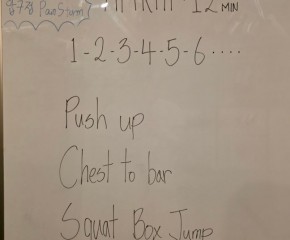 12 MIN
1-2-3-4-5-6....
Push up
Chest to bar
Squat Box Jump